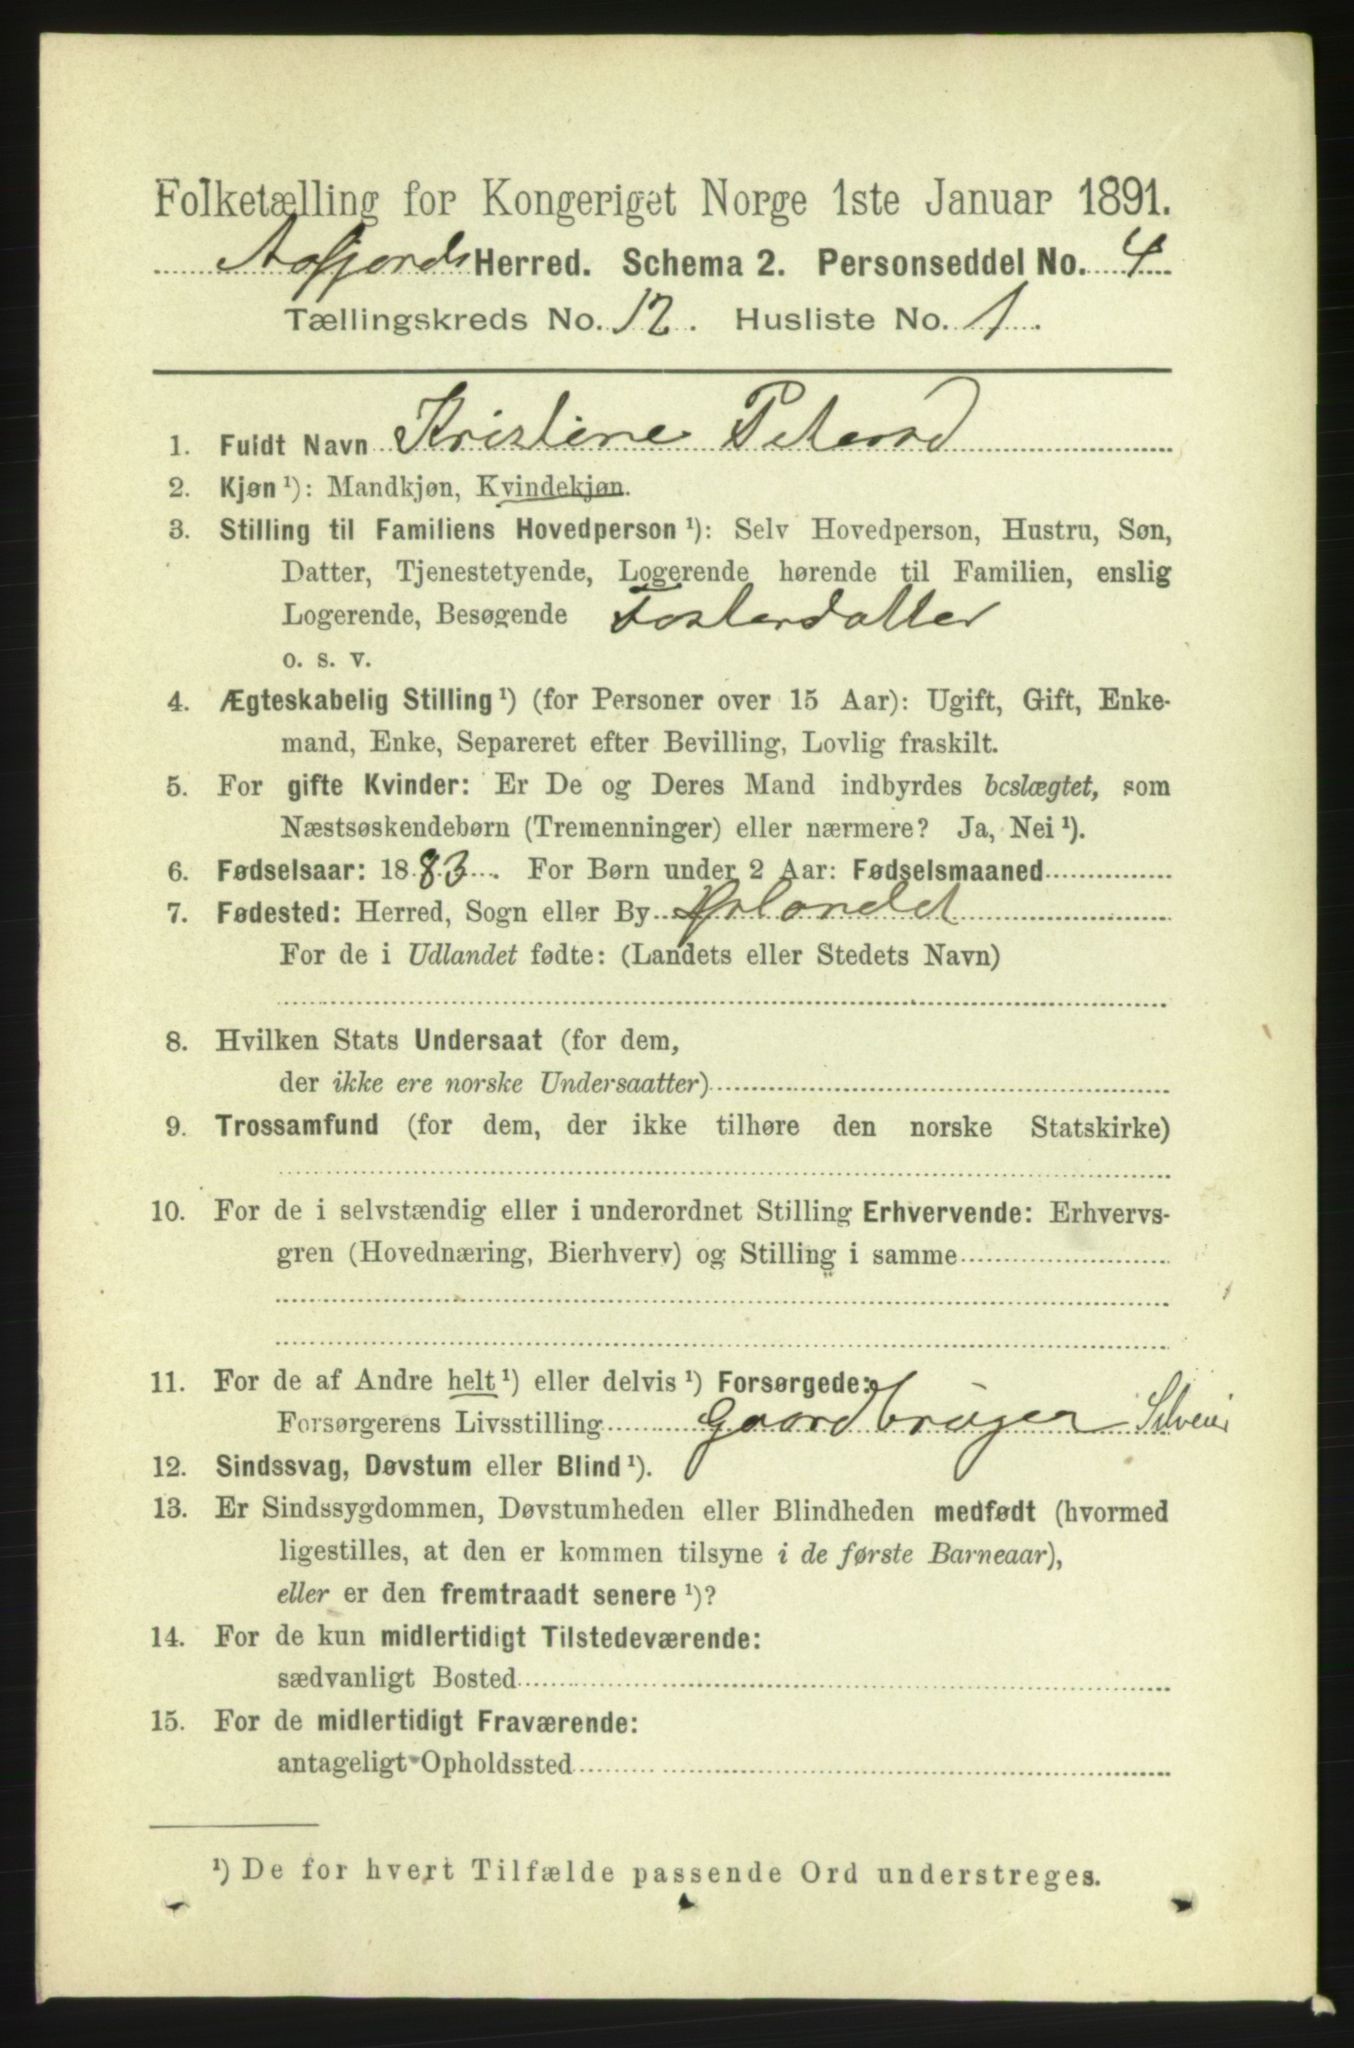 Folketælling for Kongeriget Norge 1ste Januar 1891.
Aafjords Herred. Schema 2. Personseddel No. 4
Tællingskreds No. 12. Husliste No. 1.
1. Fuldt Navn Kristine Petersd
2. Kjøn ¹): Mandkjøn, Kvindekjøn.
3. Stilling til Familiens Hovedperson ¹): Selv Hovedperson, Hustru, Søn,
Datter, Tjenestetyende, Logerende hørende til Familien, enslig
Logerende, Besøgende Fosterdatter
o. s. v.
4. Ægteskabelig Stilling ¹) (for Personer over 15 Aar): Ugift, Gift, Enke-
mand, Enke, Separeret efter Bevilling, Lovlig fraskilt.
5. For gifte Kvinder: Er De og Deres Mand indbyrdes beslægtet, som
Næstsøskendebørn (Tremenninger) eller nærmere? Ja, Nei ¹).
6. Fødselsaar: 1883. For Børn under 2 Aar: Fødselsmaaned
7. Fødested: Herred, Sogn eller By Ørlandet
For de i Udlandet fødte: (Landets eller Stedets Navn)
8. Hvilken Stats Undersaat (for dem,
der ikke ere norske Undersaatter)
9. Trossamfund (for dem, der ikke tilhøre den norske Statskirke)
10. For de i selvstændig eller i underordnet Stilling Erhvervende: Erhvervs-
gren (Hovednæring, Bierhverv) og Stilling i samme
11. For de af Andre helt ¹) eller delvis ¹) Forsørgede:
Forsørgerens Livsstilling Gaardbruger Selveier
12. Sindssvag, Døvstum eller Blind ¹).
13. Er Sindssygdommen, Døvstumheden eller Blindheden medfødt (hvormed
ligestilles, at den er kommen tilsyne i de første Barneaar),
eller er den fremtraadt senere ¹)?
14. For de kun midlertidigt Tilstedeværende:
sædvanligt Bosted
15. For de midlertidigt Fraværende:
antageligt Opholdssted
¹) De for hvert Tilfælde passende Ord understreges.